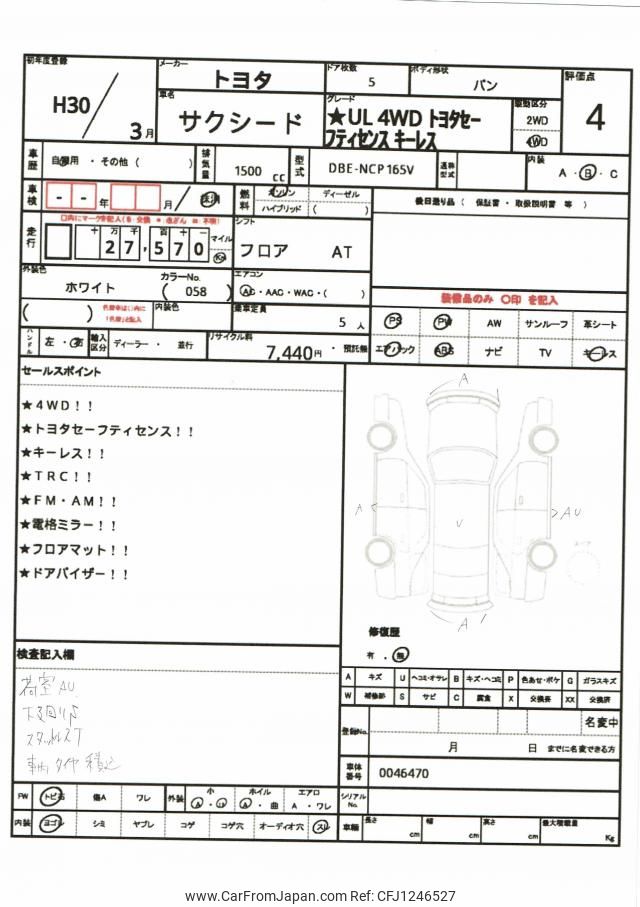 初年度登録
H30 / 3月
メーカー
トヨタ
ドア枚数
5
ボディ形状
バン
評価点
4
車名
サクシード
グレード
★UL 4WD トヨタセー
フティセンス キーレス
駆動区分
2WD
4WD
車歴
自家用 ・ その他 ( )
排気量
1500 cc
型式
DBE-NCP165V
通称型式
内装
A ・ B ・ C
車検
- - 年 月 / 抹消
燃料
ガソリン ディーゼル
ハイブリッド ( )
後日送り品 ( 保証書 ・ 取扱説明書 等 )
走行
十 万 千 百 十 一
27,570
マイル
Km
シフト
フロア AT
外装色
ホワイト
カラーNo.
( 058 )
エアコン
AC ・ AAC ・ WAC ・ ( )
装備品のみ 〇印 を記入
( )
内装色
乗車定員
5 人
PS PW AW サンルーフ 革シート
エアバック ABS ナビ TV キーレス
ハンドル
左 ・ 右
輸入区分
ディーラー ・ 並行
リサイクル料
7,440円 ・ 預託無
セールスポイント
★4WD！！
★トヨタセーフティセンス！！
★キーレス！！
★TRC！！
★FM・AM！！
★電格ミラー！！
★フロアマット！！
★ドアバイザー！！
A
A
AU
U
A
修復歴
有 ・ 無
検査記入欄
荷室AU
下廻りS
スタッドレスT
車内タイヤ積込
A キズ U ヘコミ・オサレ B キズ・ヘコミ P 色あせ・ボケ G ガラスキズ
W 補修跡 S サビ C 腐食 X 交換要 XX 交換済
登録No.
名変中
月 日 までに名変できる方
車体番号
0046470
FW トビ石 傷A ワレ
外装
小 A ・ U
ホイル A ・ 曲
エアロ A ・ ワレ
シリアルNo.
内装 ヨゴレ シミ ヤブレ コゲ コゲ穴 オーディオ穴 スレ
車輌
長さ cm
幅 cm
高さ cm
最大積載量 Kg
www.CarFromJapan.com Ref:CFJ1246527